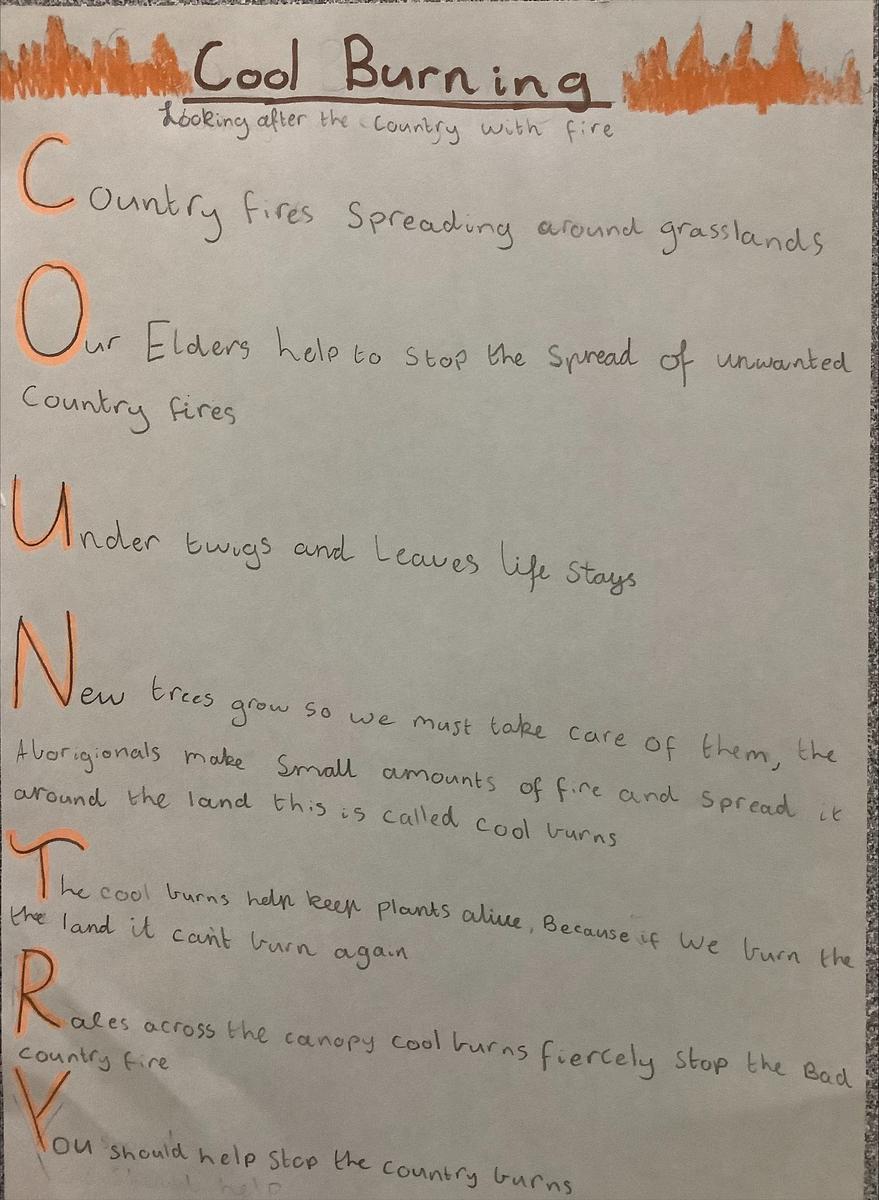 Cool Burning
Looking after the country with fire
Country fires Spreading around grasslands
Our Elders help to stop the Spread of unwanted
Country fires
Under twigs and Leaves life Stays
New trees grow so we must take care of them, the
Aborigionals make Small amounts of fire and spread it
around the land this is called cool burns
The cool burns help keep plants alive, Because if we burn the
the land it can't burn again
Rales across the canopy cool burns fiercely stop the Bad
country fire
You should help stop the country burns
help